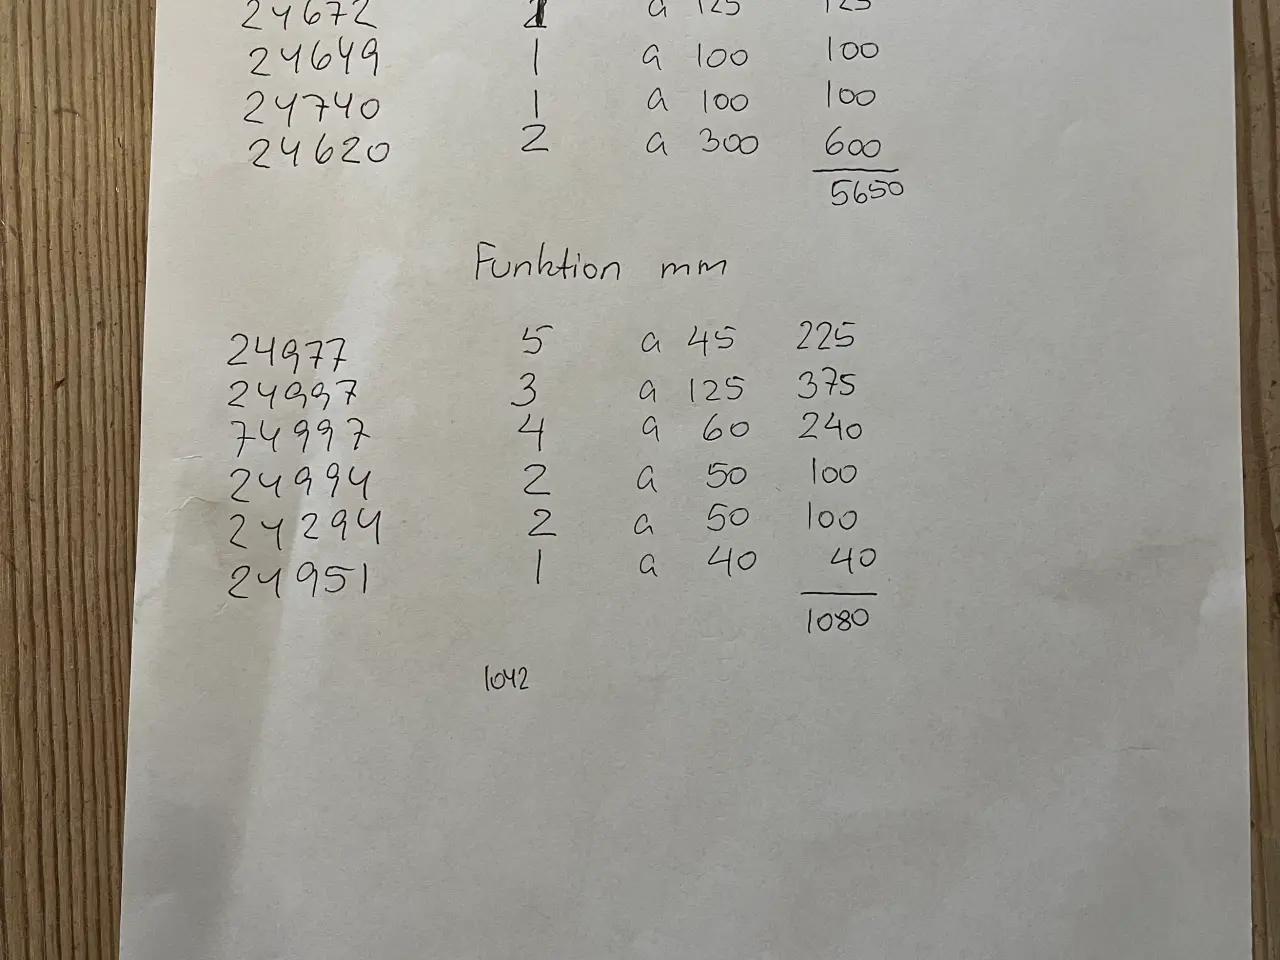 24672 1 a 125 125
24649 1 a 100 100
24740 1 a 100 100
24620 2 a 300 600
5650
Funktion mm
24977 5 a 45 225
24997 3 a 125 375
74997 4 a 60 240
24994 2 a 50 100
24294 2 a 50 100
24951 1 a 40 40
1080
1042